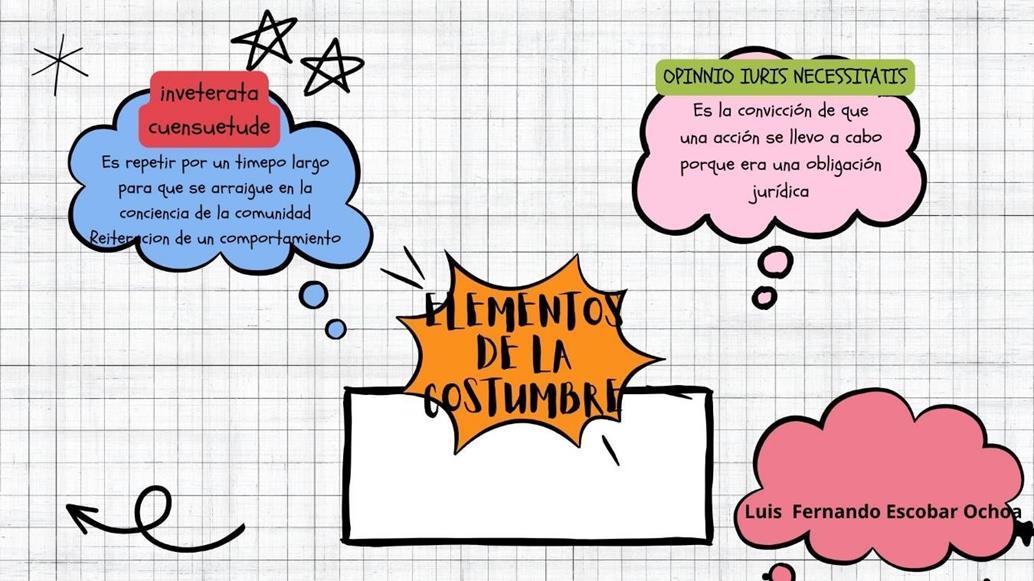 inveterata
cuensuetude
Es repetir por un timepo largo
para que se arraigue en la
conciencia de la comunidad
Reiteracion de un comportamiento
OPINNIO IURIS NECESSITATIS
Es la convicción de que
una acción se llevo a cabo
porque era una obligación
jurídica
ELEMENTOS
DE LA
COSTUMBRE
Luis Fernando Escobar Ochoa